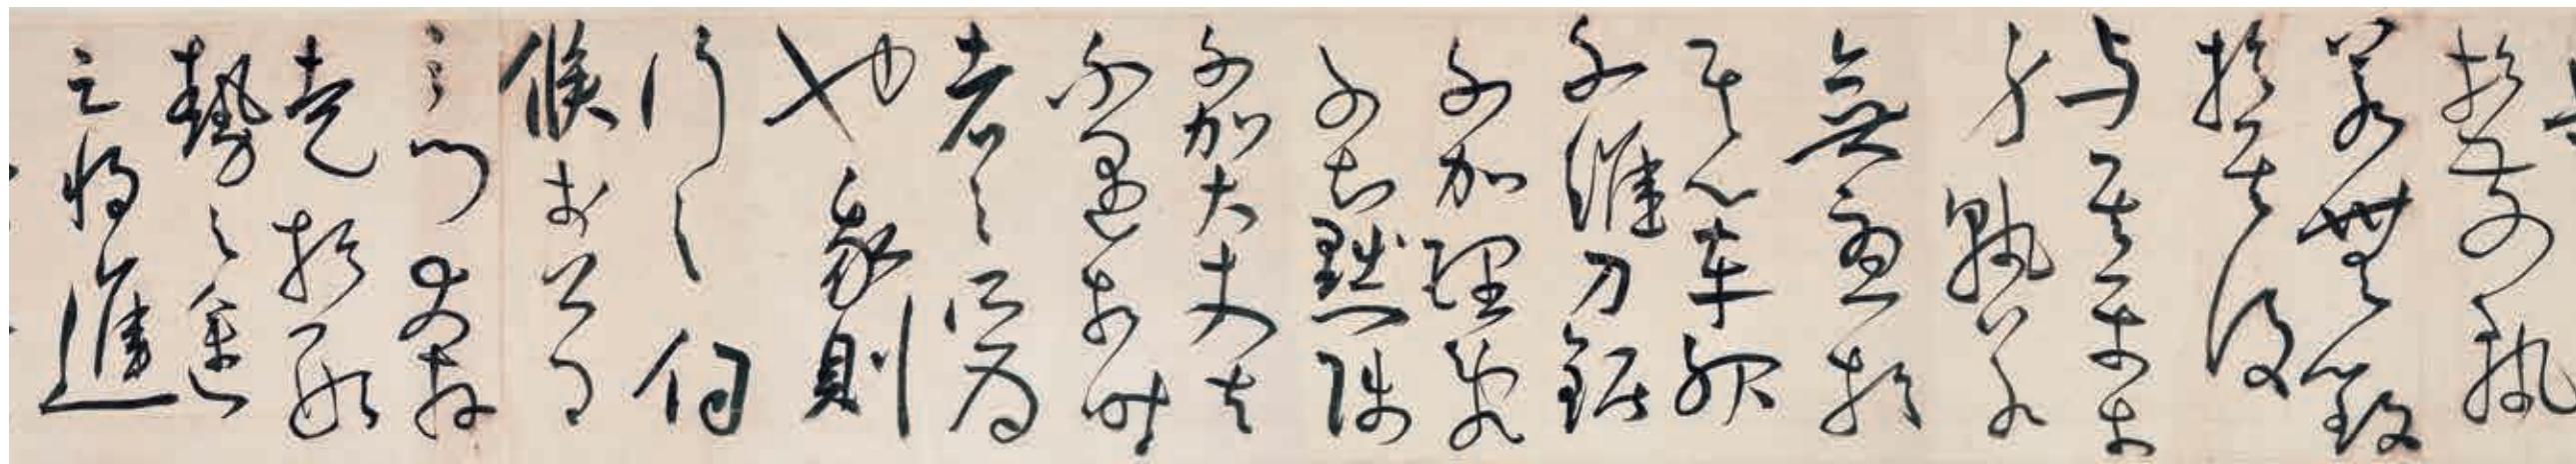 於前孰
若無毀
於其後
与其樂於
身孰若
無憂於
其心車服
不維刀鋸
不加理亂
不知黜陟
不加大丈夫
不遇於時
者之所為
也我則
行之伺
候於公卿
之門奔
走於形
勢之途
足將進